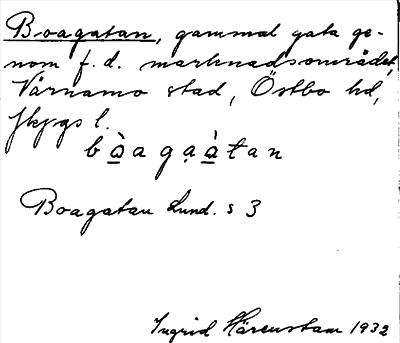 Boagatan, gammal gata ge-
nom f.d. marknadsområdet,
Värnamo stad, Östbo hd,
Jkpgs l.
bò̲agạà̲tan
Boagatan Lund. s 3
Ingrid Härenstam 1932